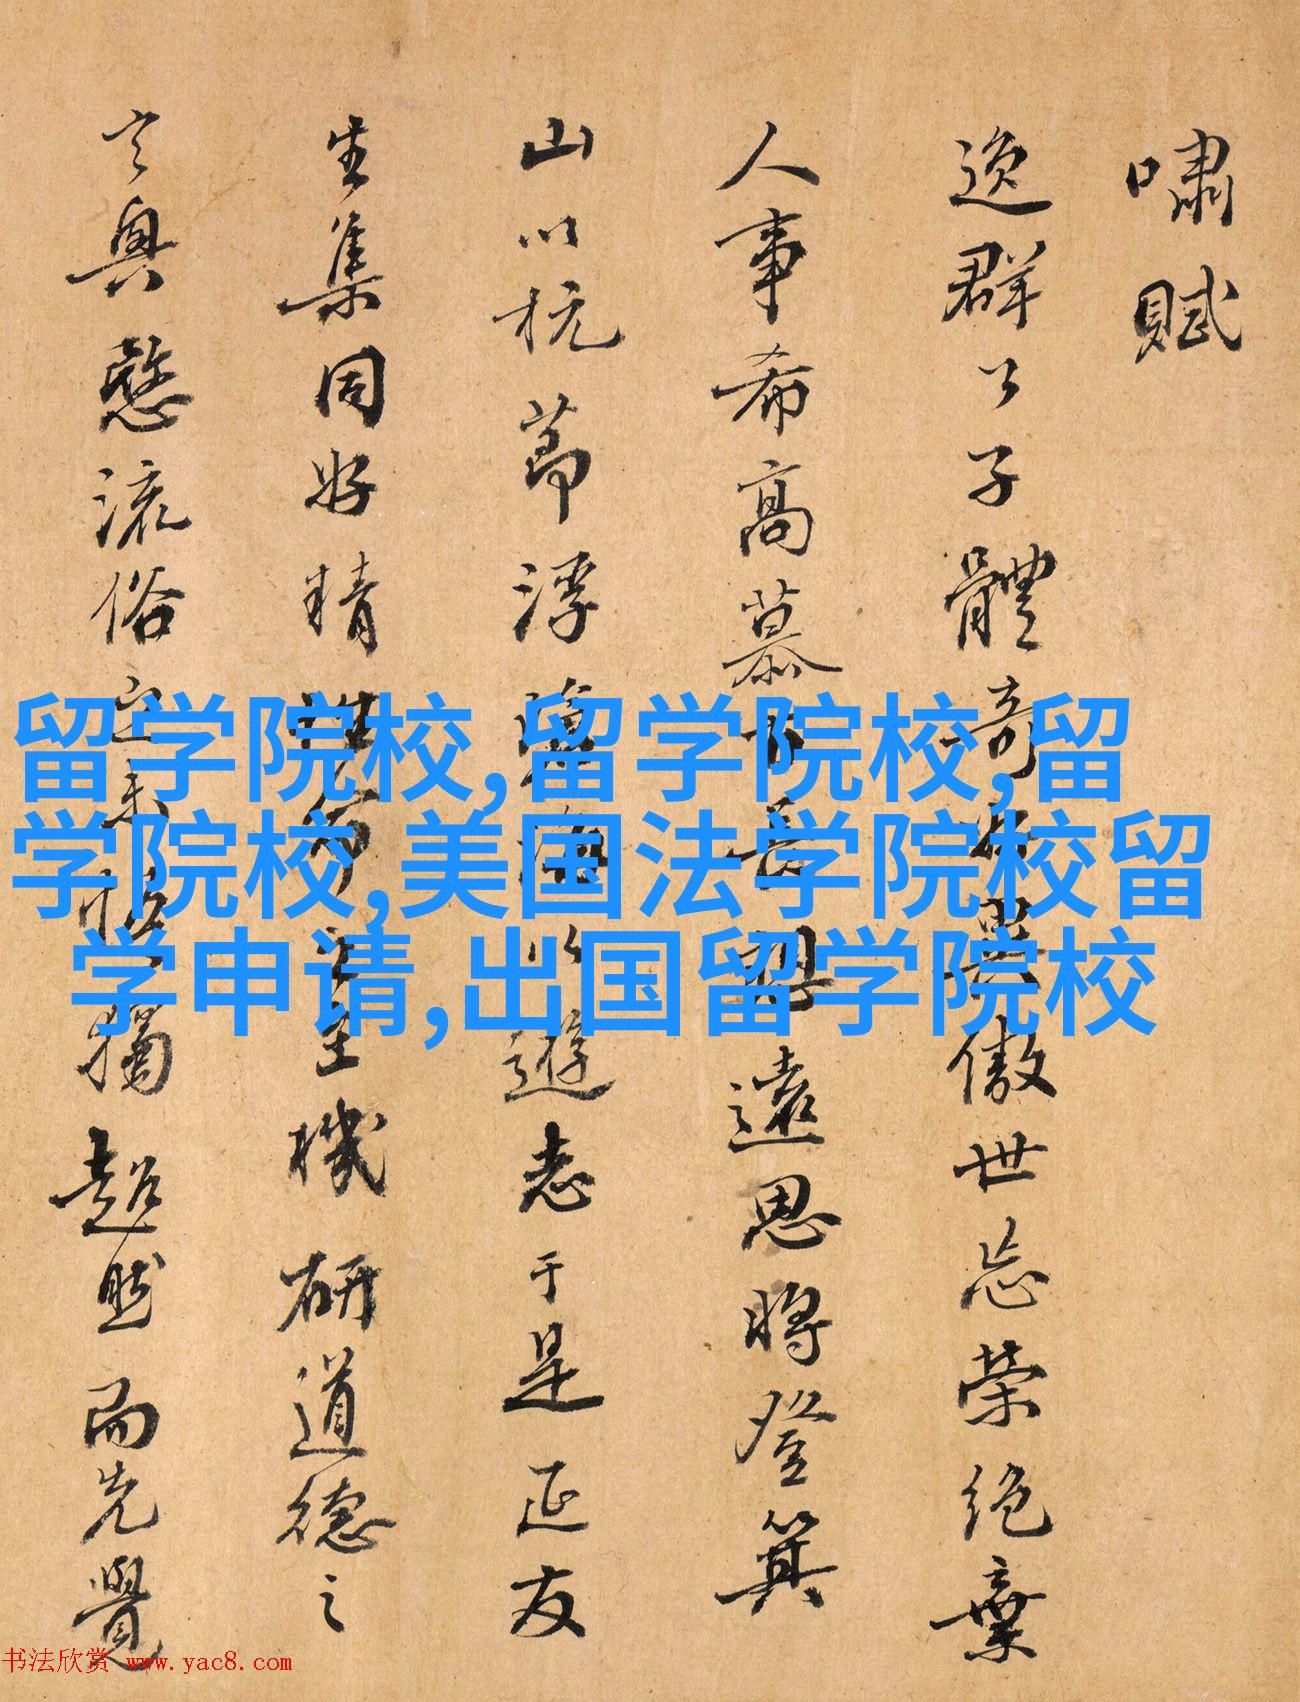 嘯賦
逸群公子體奇好異傲世忘榮絕棄
人事希高慕古長想遠思將登箕
山以抗節浮滄海以遊志于是延友
生集同好精性命之至機研道德之
玄奥愍流俗之未悟獨超然而先覺
留学院校,留学院校,留
学院校,美国法学院校留
学申请,出国留学院校
书法欣赏 www.yac8.com